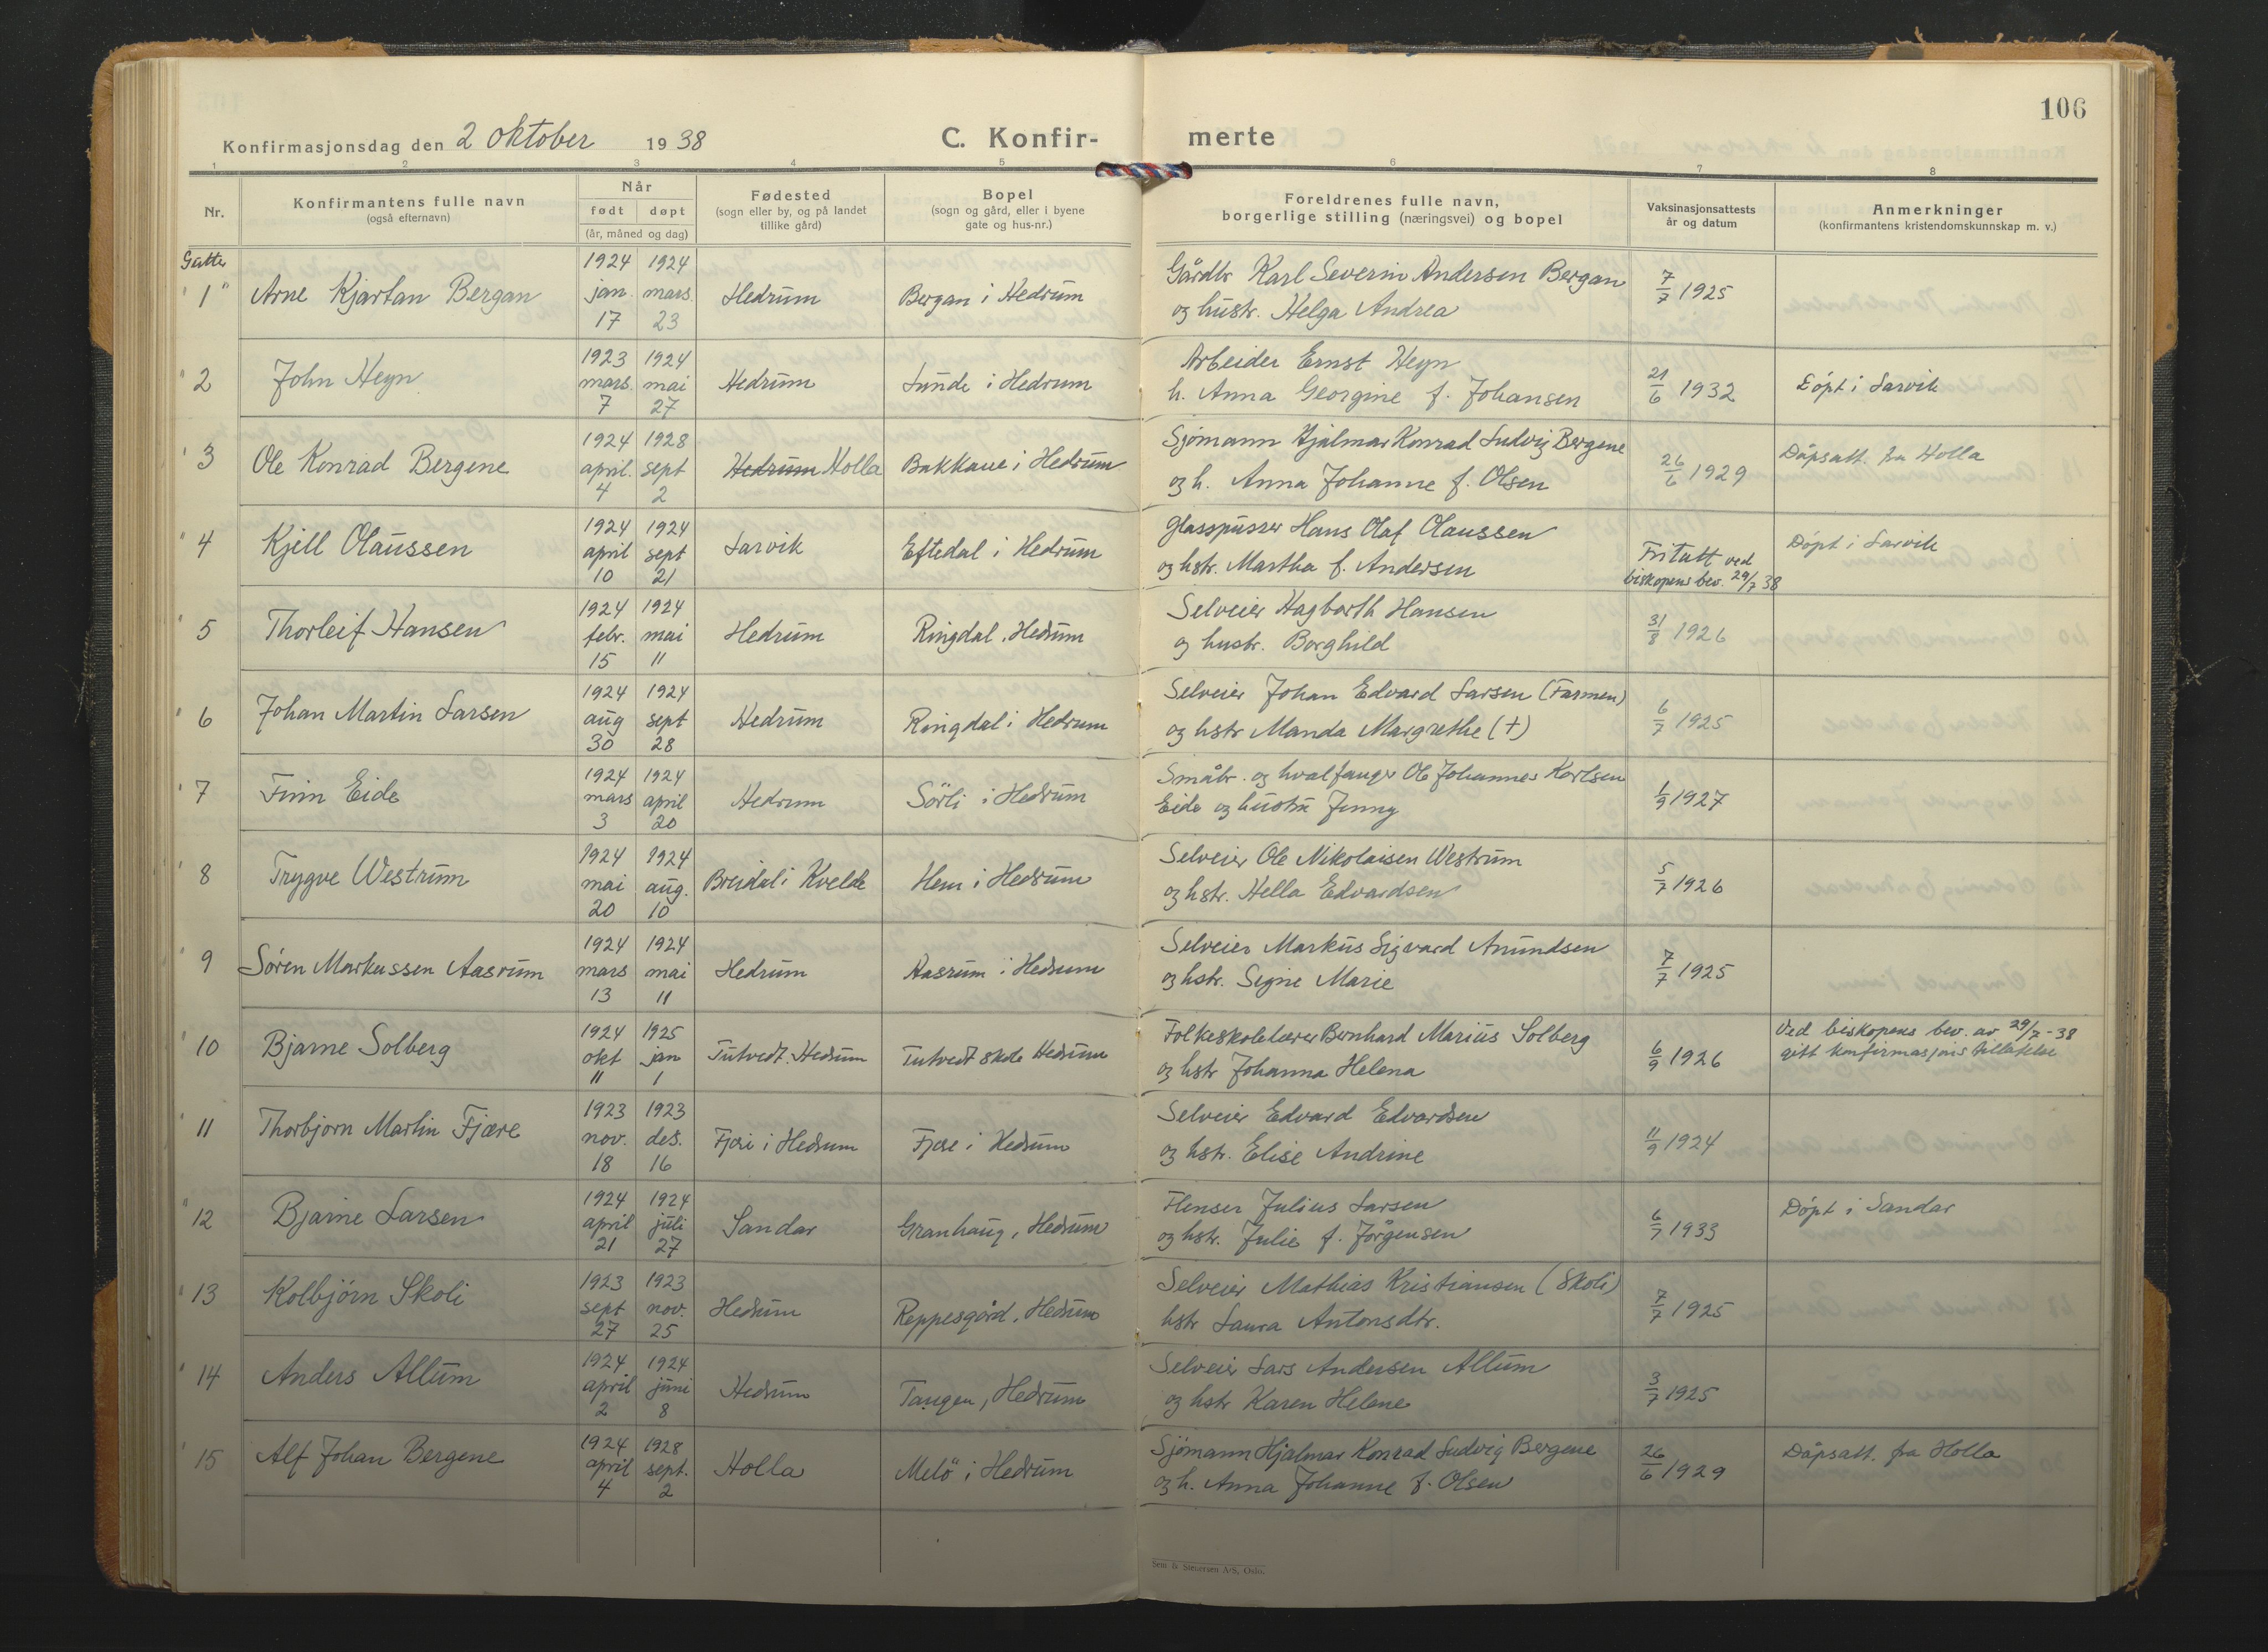 106
Konfirmasjonsdag den 2 oktober 1938 C. Konfir- merte
1 2 3 4 5 6 7 8
Nr.
Konfirmantens fulle navn
(også efternavn)
Når
født døpt
(år, måned og dag)
Fødested
(sogn eller by, og på landet
tillike gård)
Bopel
(sogn og gård, eller i byene
gate og hus-nr.)
Foreldrenes fulle navn,
borgerlige stilling (næringsvei) og bopel
Vaksinasjonsattests
år og datum
Anmerkninger
(konfirmantens kristendomskunnskap m. v.)
Gutter
1 Arne Kjartan Bergan
1924 1924
jan. mars.
17 23
Hedrum
Bergan i Hedrum
Gårdbr Karl Severin Andersen Bergan
og hustr. Helga Andrea
7/7 1925
2 John Heyn
1923 1924
mars. mai
7 27
Hedrum
Lunde i Hedrum
Arbeider Ernst Heyn
h. Anna Georgine f. Johansen
21/6 1932
Døpt i Larvik
3 Ole Konrad Bergene
1924 1928
april. sept
4 2
Hedrum Holla
Bakkane i Hedrum
Sjømann Hjalmar Konrad Ludvig Bergene
og h. Anna Johanne f. Olsen
26/6 1929
Dåpsatt. fra Holla
4 Kjell Olaussen
1924 1924
april sept
10 21
Larvik
Eftedal i Hedrum
Glasspusser Hans Olaf Olaussen
og hstr. Martha f. Andersen
Fritatt ved
biskopens bev. 29/7 38
Døpt i Larvik
5 Thorleif Hansen
1924 1924
febr. mai
15 11
Hedrum
Ringdal, Hedrum
Selveier Hagbarth Hansen
og hustr. Borghild
31/8 1926
6 Johan Martin Larsen
1924 1924
aug sept
30 28
Hedrum
Ringdal i Hedrum
Selveier Johan Edvard Larsen (Farmen)
og hstr Manda Margrethe (+)
6/7 1925
7 Finn Eide
1924 1924
mars april
3 20
Hedrum
Sörli i Hedrum
Småbr. og hvalfanger Ole Johannes Karlsen
Eide og hustru Jenny
1/9 1927
8 Trygve Westrum
1924 1924
mai aug.
20 10
Breidal i Kvelde
Hem i Hedrum
Selveier Ole Nikolaisen Westrum
og hstr. Hella Edvardsen
5/7 1926
9 Søren Markussen Aasrum
1924 1924
mars mai
13 11
Hedrum
Aasrum i Hedrum
Selveier Markus Sigvard Anundsen
og hstr. Signe Marie
7/7 1925
10 Bjarne Solberg
1924 1925
okt jan
11 1
Tutvedt. Hedrum
Tutvedt skole Hedrum
Folkeskolelærer Bernhard Marius Solberg
og hstr Johanna Helena
6/9 1926
Ved biskopens bev. av 29/7-38
gitt konfirmasjonstillatelse
11 Thorbjørn Martin Fjære
1923 1923
nov. des.
18 16
Fjære i Hedrum
Fjære i Hedrum
Selveier Edvard Edvardsen
og hstr. Elise Andrine
11/9 1924
12 Bjarne Larsen
1924 1924
april juli
21 27
Sandar
Granhaug, Hedrum
Flenser Julius Larsen
og hstr. Julie f. Jörgensen
6/7 1933
Döpt i Sandar
13 Kolbjørn Skoli
1923 1923
sept nov.
27 25
Hedrum
Reppesgård, Hedrum
Selveier Mathias Kristiansen (Skoli)
hstr Laura Antonsdtr.
7/7 1925
14 Anders Allum
1924 1924
april juni
2 8
Hedrum
Tangen, Hedrum
Selveier Lars Andersen Allum
og hstr Karen Helene
3/7 1925
15 Alf Johan Bergene
1924 1928
april sept.
4 2
Holla
Melö i Hedrum
Sjömann Hjalmar Konrad Ludvig Bergene
og h. Anna Johanne f. Olsen
26/6 1929
Dåpsatt. fra Holla
Sem & Stenersen A/S, Oslo.